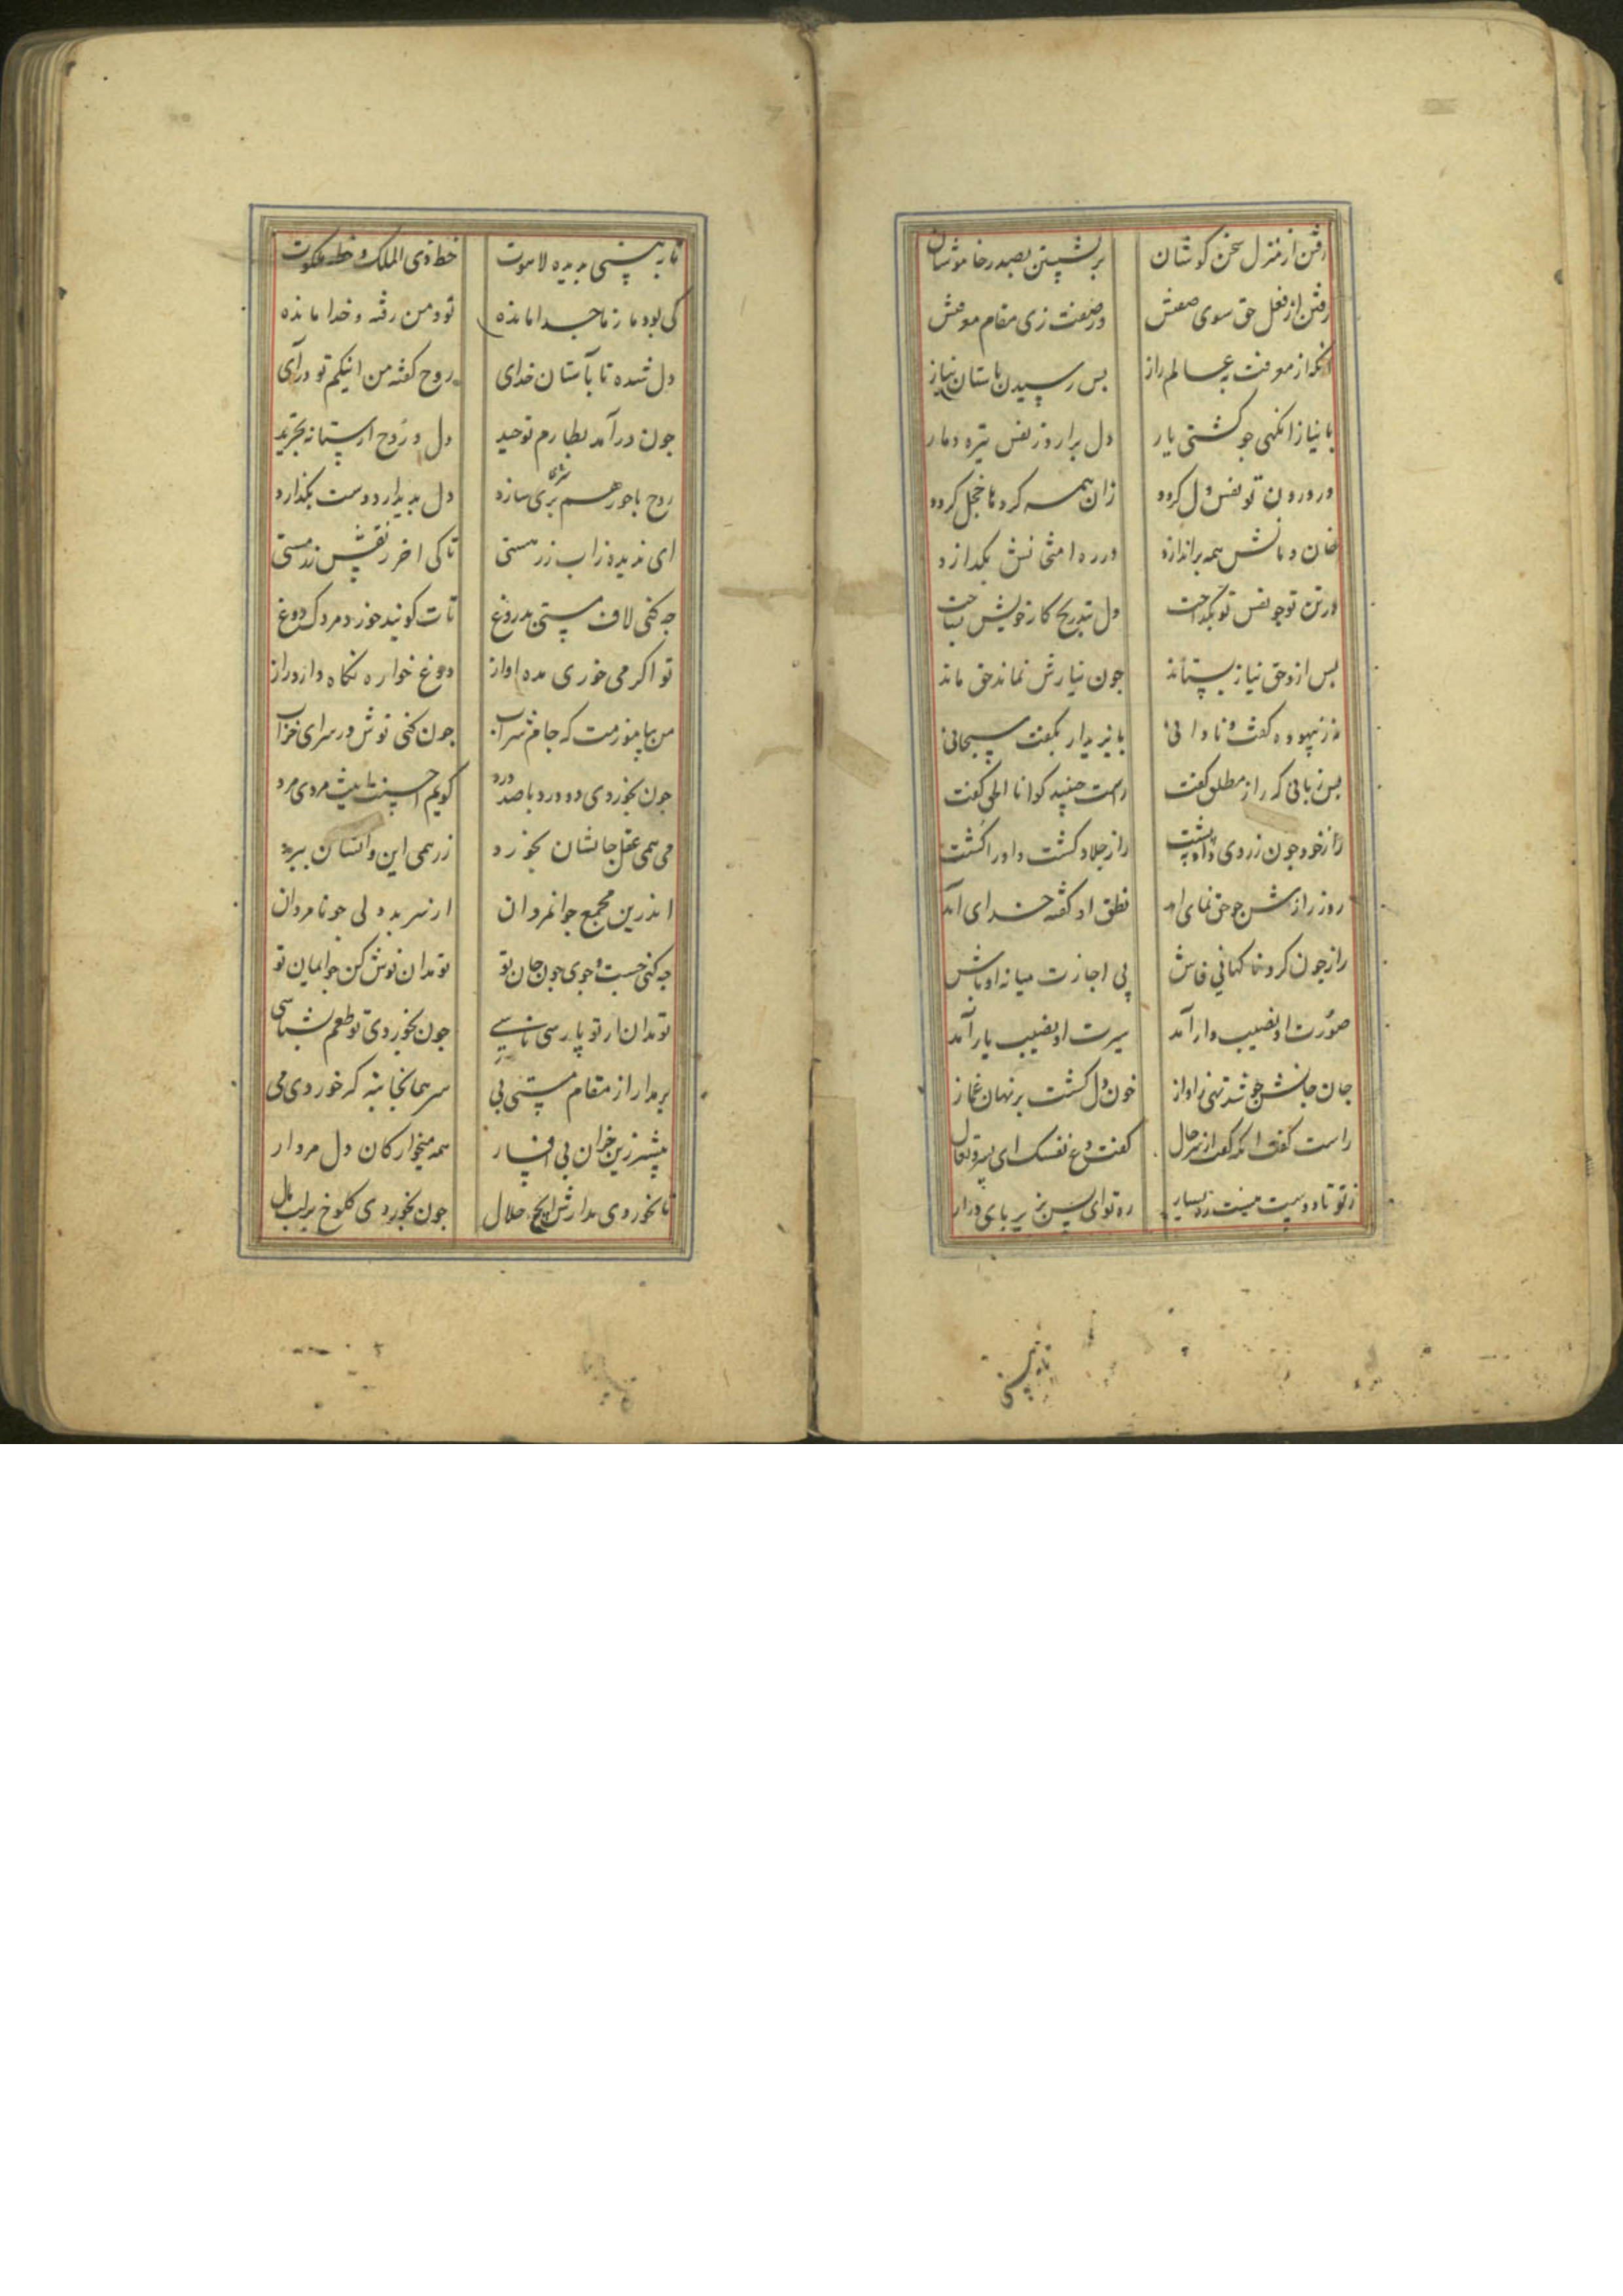 رفتن از منزل سخن کوشان برنشستن بصدر خاموشان
رفتن از فعل حق سوی صفتش وز صفت زی مقام معرفتش
آنکه از معرفت به عالم راز بس رسیدن باستان نیاز
با نیاز آنکهی جو کشتی یار دل برارد ز نفس تیره دمار
در درون تو نفس دل کردد زان همه کردها خجل کردد
خان و مانش همه براندازد در ره امتحانش بکدازد
در تن تو جو نفس تو بکداخت دل بتدریج کار خویش بساخت
بس ازو حق نیاز بستاند جون نیازش نماند حق ماند
نه ز بیهوده کفت و نادانی بایزید ار بکفت سبحانی
بس زبانی که راز مطلق کفت راست جنبید کو انا الحق کفت
راز خود جون ز روی داد بپشت راز جلاد کشت و او را کشت
روز رازش جو حق نمای آمد نطق او کفته خدای آمد
راز جون کرد ناکهانی فاش بی اجازت میانه اوباش
صورت او نصیب دار آمد سیرت او نصیب یار آمد
جان جانش جو شد تهی ز آواز خون دل کشت بر نهان غماز
راست کفت آنکه کفت از سر حال کفت دع نفسک ای پسر و تعال
از تو تا دوست نیست ره بسیار ره توای پس بزیر پای درار
تا به بینی
تا به بینی بدیده لاهوت خط ذی الملک و خط ملکوت
کی بود ما ز ما جدا مانده تو و من رفته و خدا مانده
دل شده تا بآستان خدای روح کفته من اینکم تو درآی
جون درآمد بطارم توحید دل و روح از ستانه تجرید
روح با حور همسری سازد دل بدیدار دوست بکدازد
ای ندیده ز آب رز مستی تا کی آخر ز نقش رز مستی
جه کنی لاف مستی بدروغ تات کویند خورد مردک دوغ
تو اکر می خوری مده آواز دوغ خواره نکاه دارد راز
من بیاموزمت که جام شراب جون کنی نوش در سرای خراب
جون بخوردی دو درد با صد درد کویم احسنت اینت مردی مرد
می همی عقل و جانشان بخورد زر همی این و آنشان ببرد
اندرین مجمع جوانمردان از سر بددلی جو نامردان
جه کنی جست و جوی جون جان تو تو مدان نوش کن جو ایمان تو
تو مدان ار تو پارسی تاسی جون بخوردی تو طعم بشناسی
برمدار از مقام مستی پی سر همانجا بنه که خوردی می
بیشتر زین خران بی افسار همه میخوارکان دل مردار
تا نخوردی مدارش ایچ حلال جون بخوردی کلوخ بر لب مال